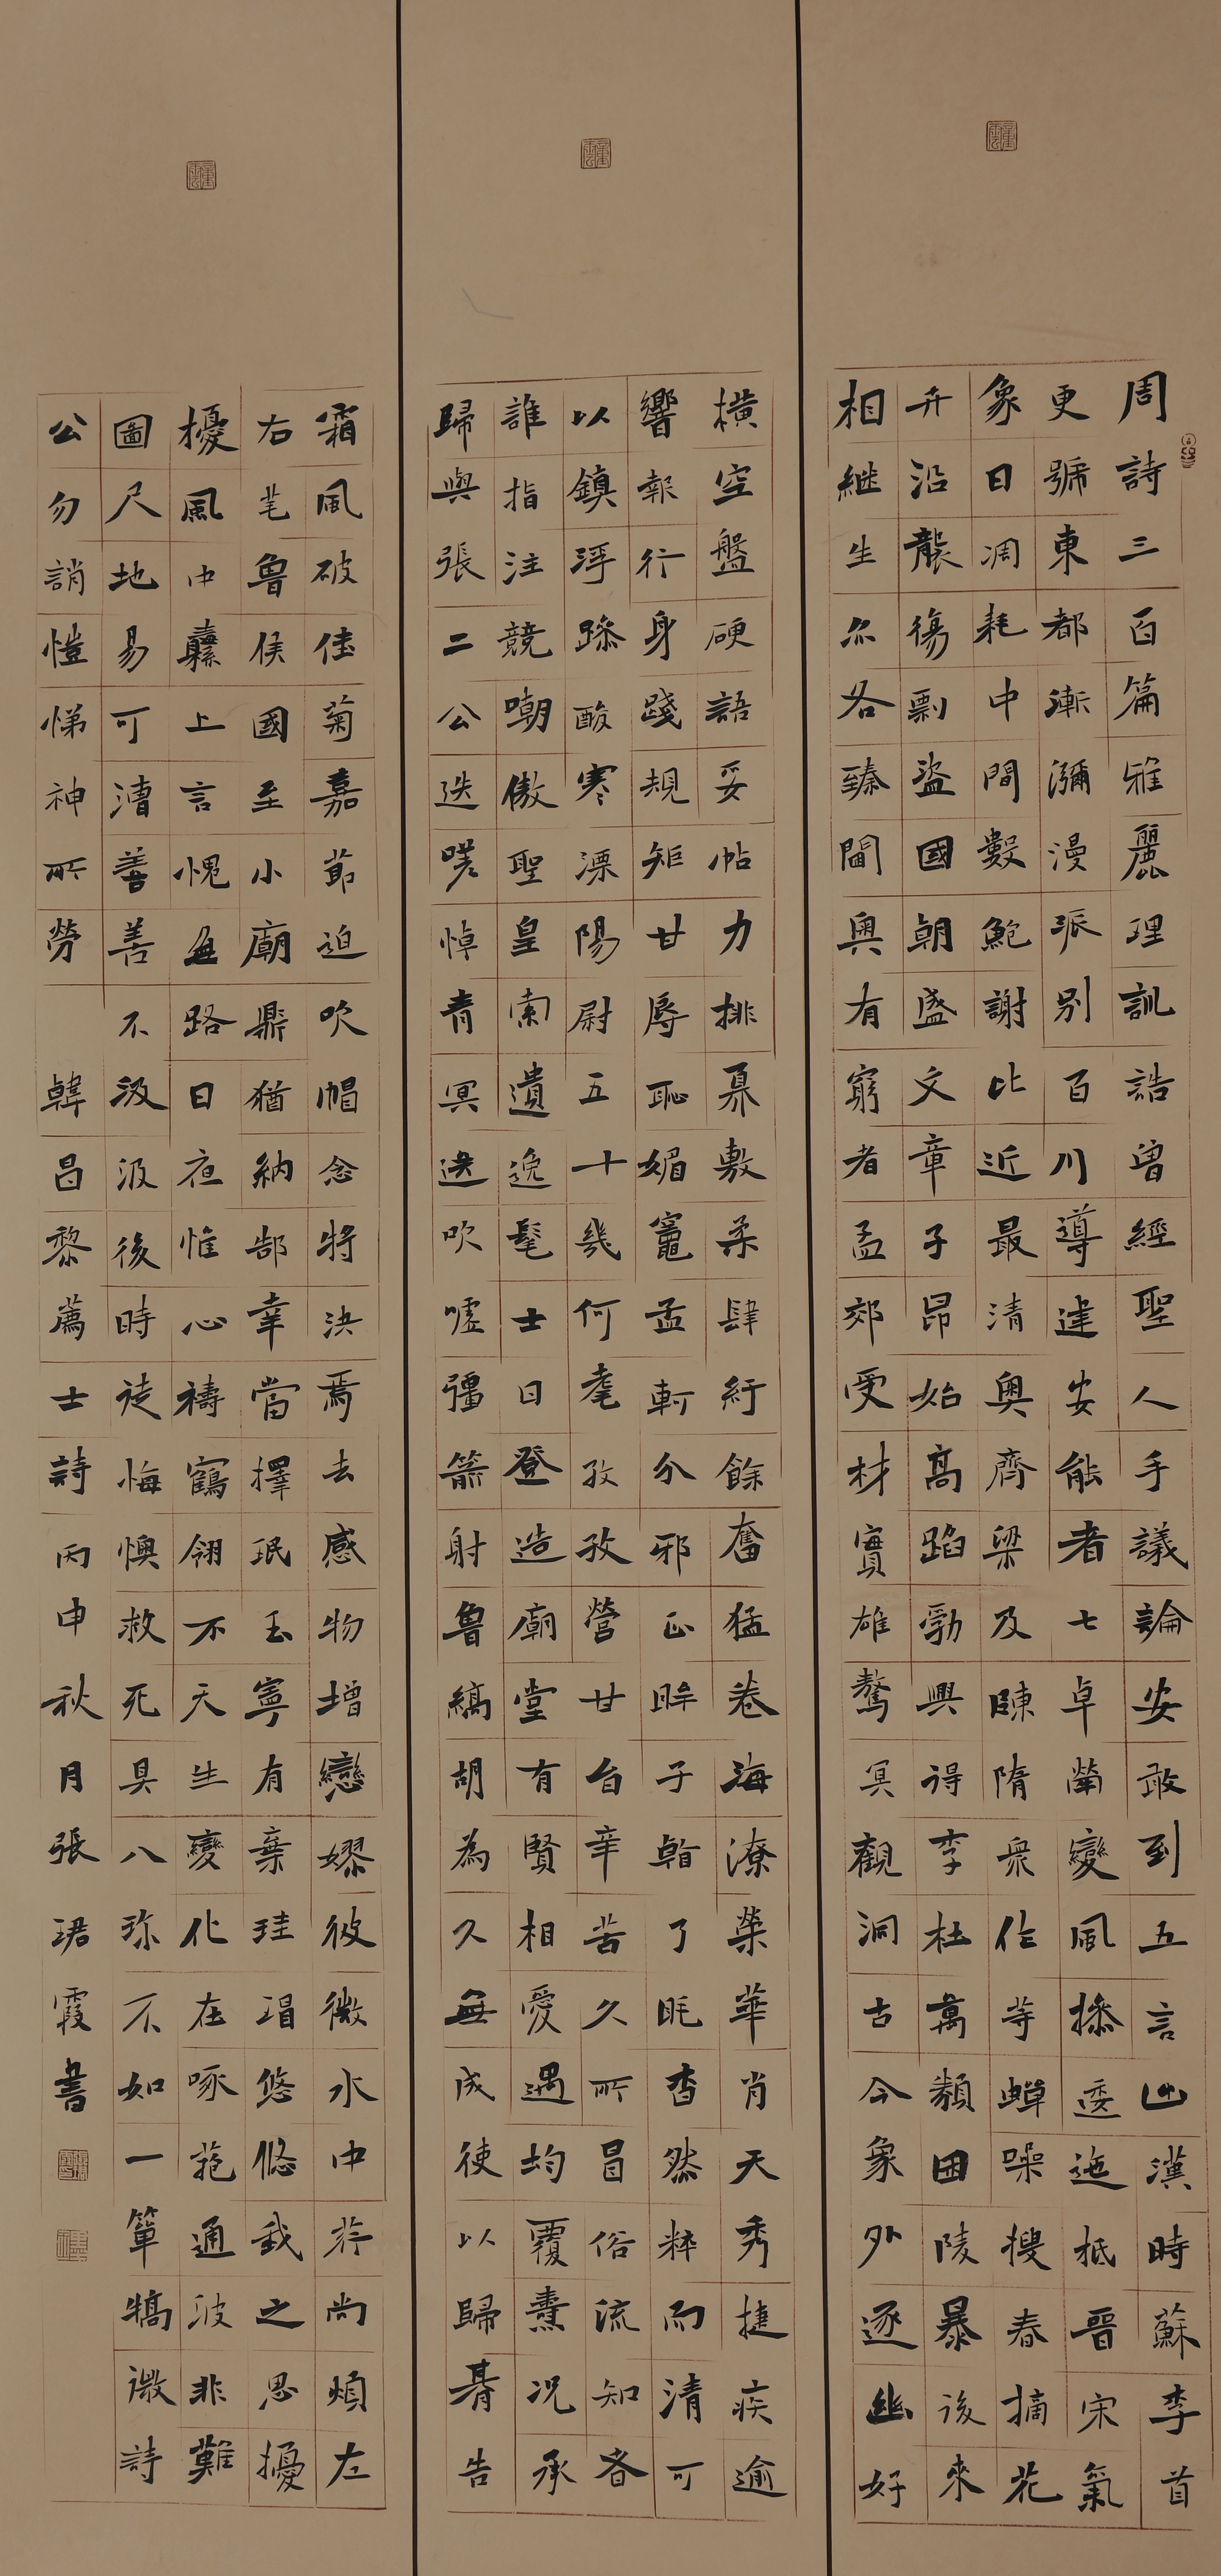 周詩三百篇雅麗理訓誥曾經聖人手議論安敢到五言出漢時蘇李首
更號東都漸瀰漫派別百川導建安能者七卓犖變風操逶迤抵晉宋氣
象日凋耗中間數鮑謝比近最清奥齊梁及陳隋衆作等蟬噪搜春摘花
卉沿襲傷剽盜國朝盛文章子昂始高蹈勃興得李杜萬類困陵暴後來
相継生亦各臻閫奥有窮者孟郊受材實雄驁冥觀洞古今象外逐幽好
橫空盤硬語妥帖力排奡敷柔肆紆餘奮猛卷海潦榮華肖天秀捷疾逾
響報行身踐規矩甘辱恥媚竈孟軻分邪正眸子看了眊杳然粹而清可
以鎮浮躁酸寒溧陽尉五十幾何耄孜孜營甘旨辛苦久所冒俗流知者
誰指注競嘲傲聖皇索遺逸髦士日登造廟堂有賢相愛遇均覆燾況承
歸與張二公迭嗟悼青冥送吹噓彊箭射魯縞胡為久無成使以歸期告
霜風破佳菊嘉節迫吹帽念將決焉去感物增戀嫪彼微水中荇尚煩左
右芼魯侯國至小廟鼎猶納郜幸當擇珉玉寧有棄珪瑁悠悠我之思擾
擾風中纛上言愧無路日夜惟心禱鶴翎不天生變化在啄菢通波非難
圖尺地易可漕善善不汲汲後時徒悔懊救死具八珍不如一簞犒微詩
公勿誚愷悌神所勞 韓昌黎薦士詩 丙申秋月張珺霞書